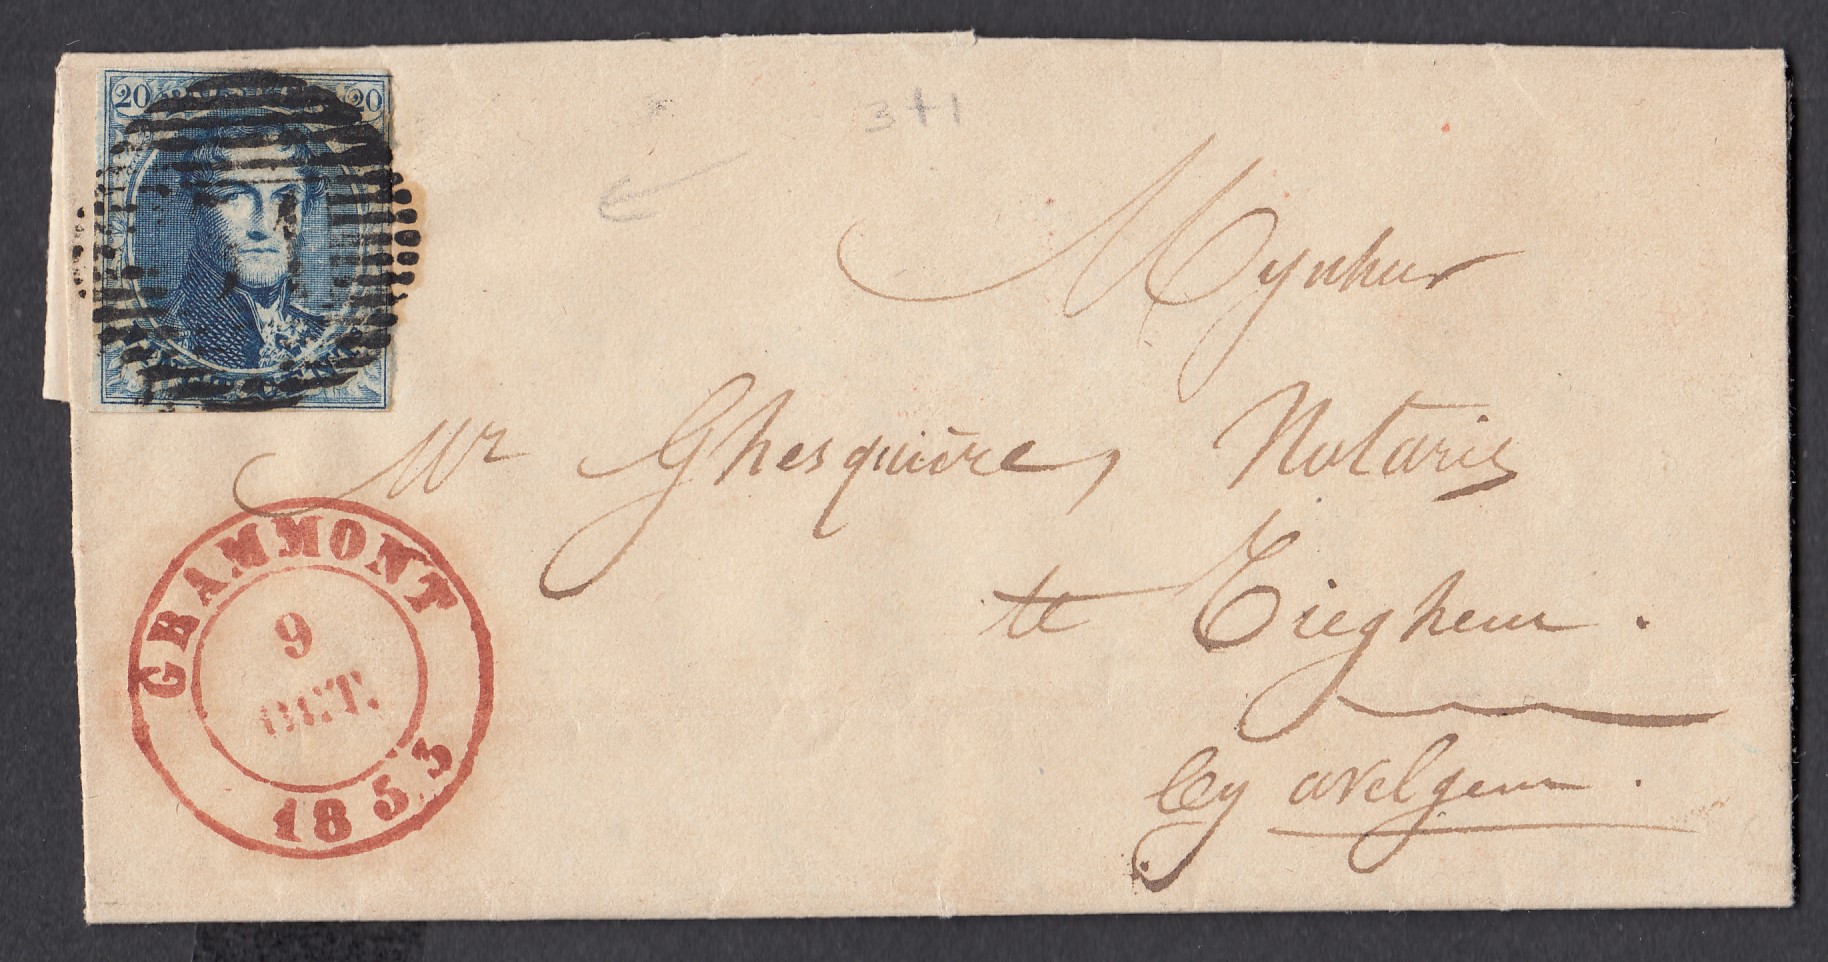 20 20
3+1
Mynheer
Mr Ghesquière, Notaris
te Tieghem.
by avelgem.
GRAMMONT
9
OCT.
1853